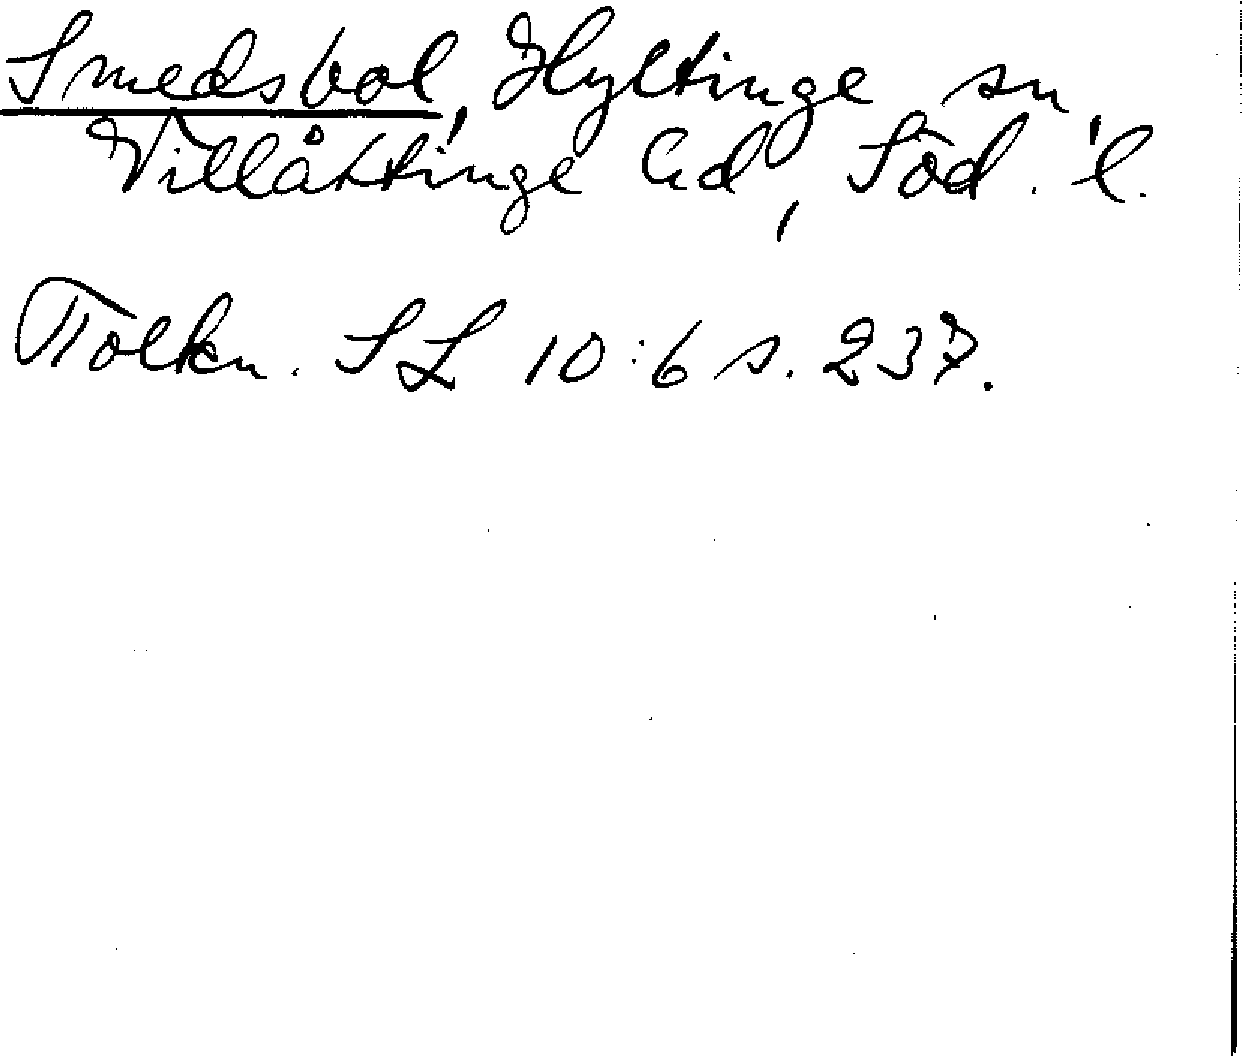 Smedsbol, Hyltinge sn
Villåttinge hd, Söd. l.
Tolkn. SL 10:6 s. 237.